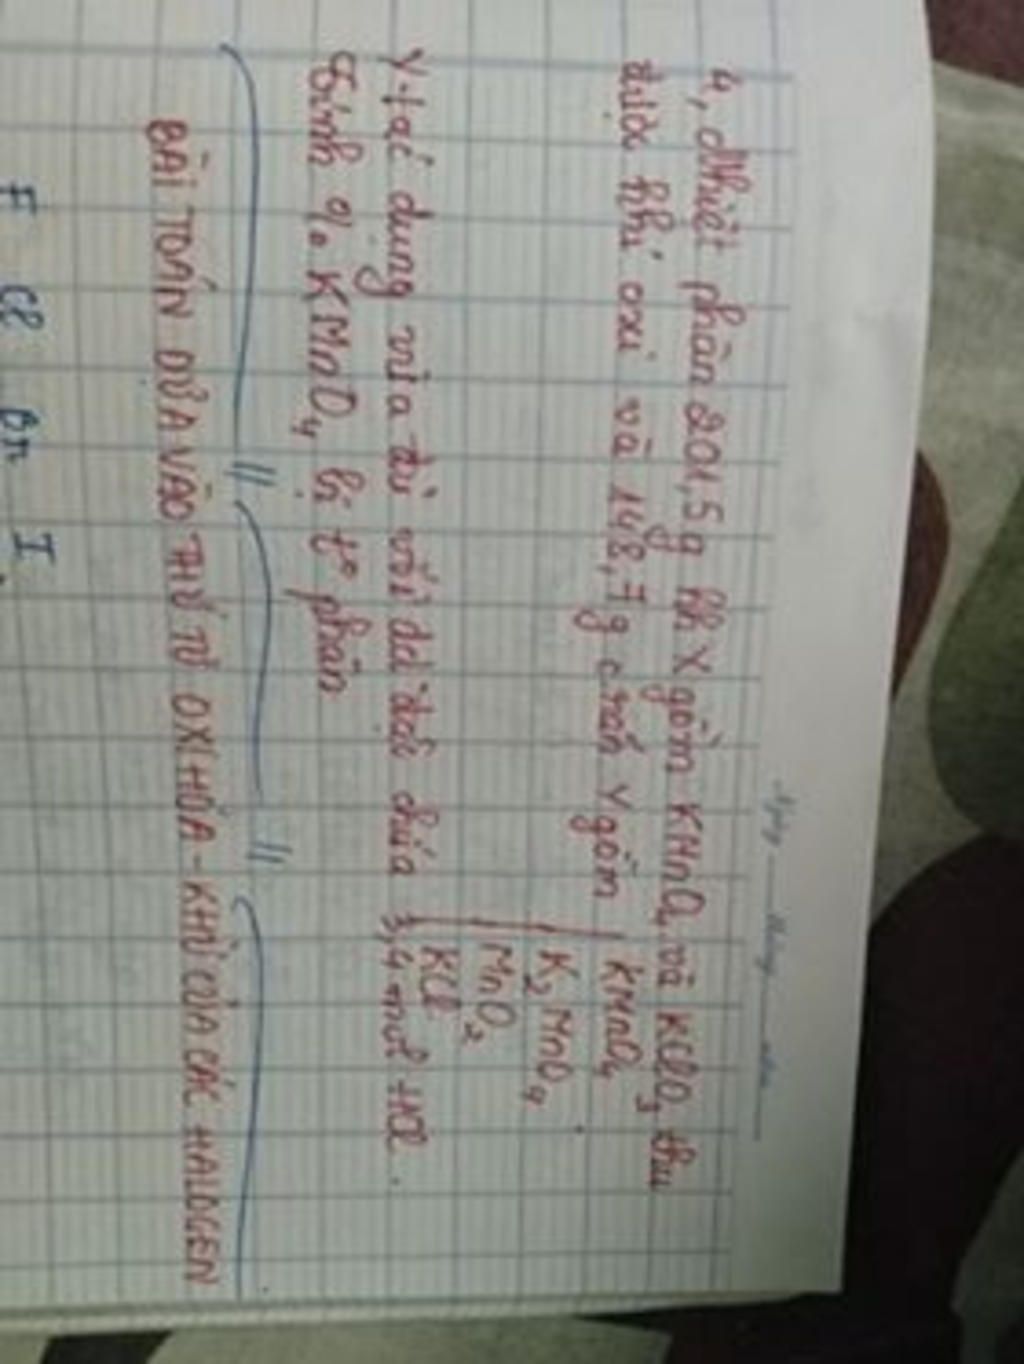 Ngày tháng năm
4, Nhiệt phân 201,5g hh X gồm KMnO4 và KClO3 thu
được khí oxi và 148,7g c rắn Y gồm KMnO4
K2MnO4
MnO2
KCl
Y tác dụng vừa đủ với dd đặc chứa 3,4 mol HCl.
Tính % KMnO4 bị t° phân
BÀI TOÁN DỰA VÀO THỨ TỰ OXI HÓA - KHỬ CỦA CÁC HALOGEN
F Cl Br I